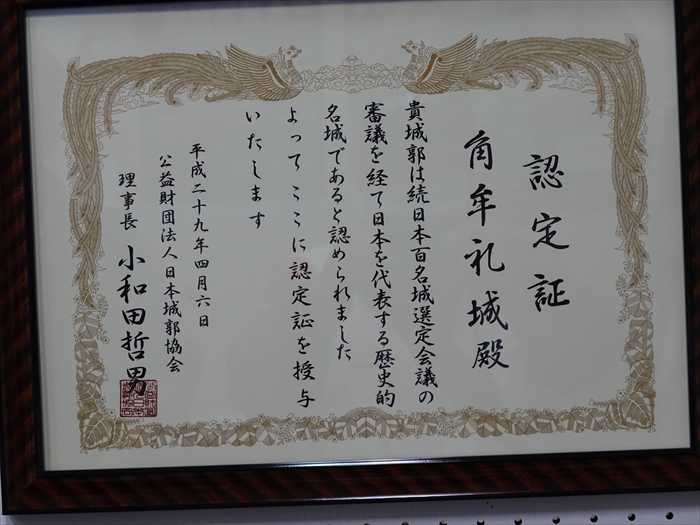 認定証
角牟礼城殿
貴城郭は続日本百名城選定会議の
審議を経て日本を代表する歴史的
名城であると認められました
よってここに認定証を授与
いたします
平成二十九年四月六日
公益財団法人日本城郭協会
理事長 小和田哲男